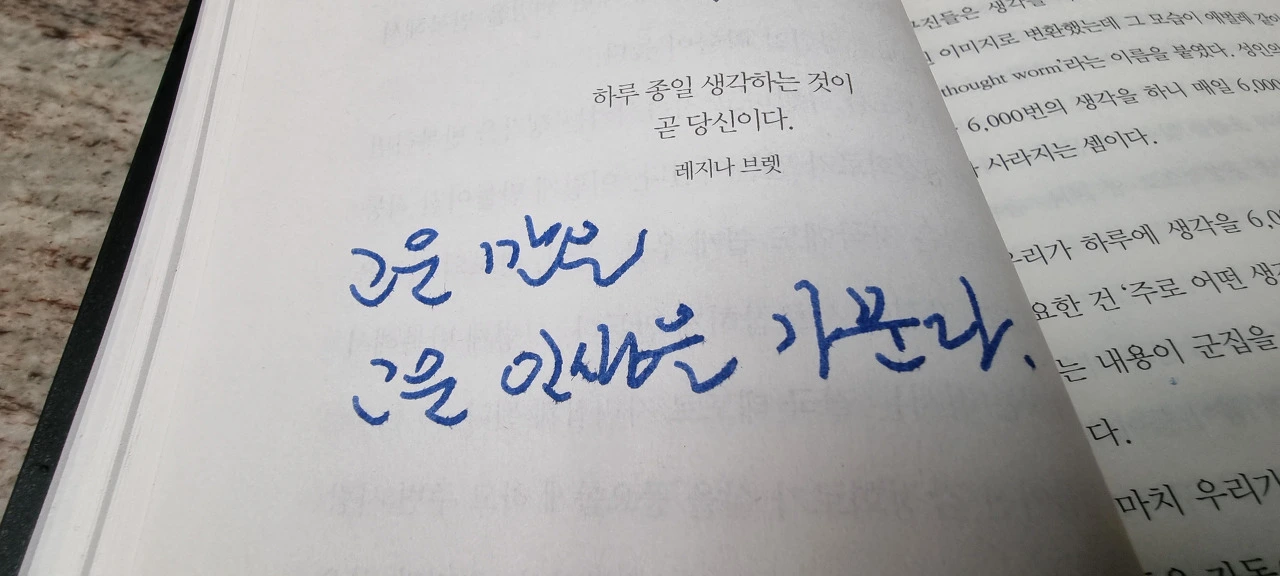 하루 종일 생각하는 것이
곧 당신이다.
레지나 브렛
고운
고운 인생을 가꾼다.
진들은 생각을
이미지로 변환했는데 그 모습이 애벌레 같아
thought worm'라는 이름을 붙였다. 성인의
6,000번의 생각을 하니 매일 6,000
사라지는 셈이다.
우리가 하루에 생각을 6,0
요한 건 '주로 어떤 생각
는 내용이 군집을
다.
마치 우리가